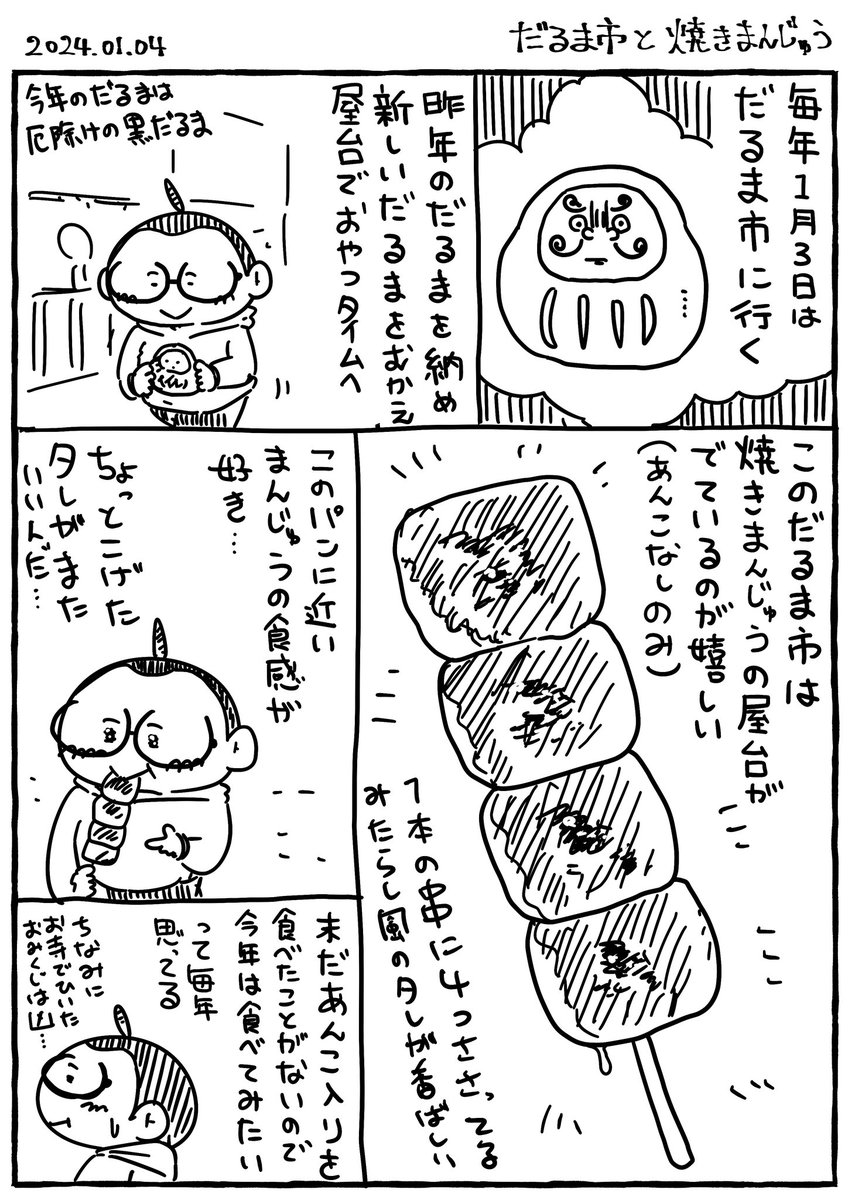 2024.01.04
だるま市と焼きまんじゅう
毎年1月3日は
だるま市に行く
昨年のだるまを納め
新しいだるまをむかえ
屋台でおやつタイムへ
今年のだるまは
厄除けの黒だるま
このだるま市は
焼きまんじゅうの屋台が
でているのが嬉しい
(あんこなしのみ)
1本の串に4つささってる
みたらし風のタレが香ばしい
このパンに近い
まんじゅうの食感が
好き…
ちょっとこげた
タレがまた
いいんだ…
未だあんこ入りを
食べたことがないので
今年は食べてみたい
って毎年
思ってる
ちなみに
お寺でひいた
おみくじは凶…